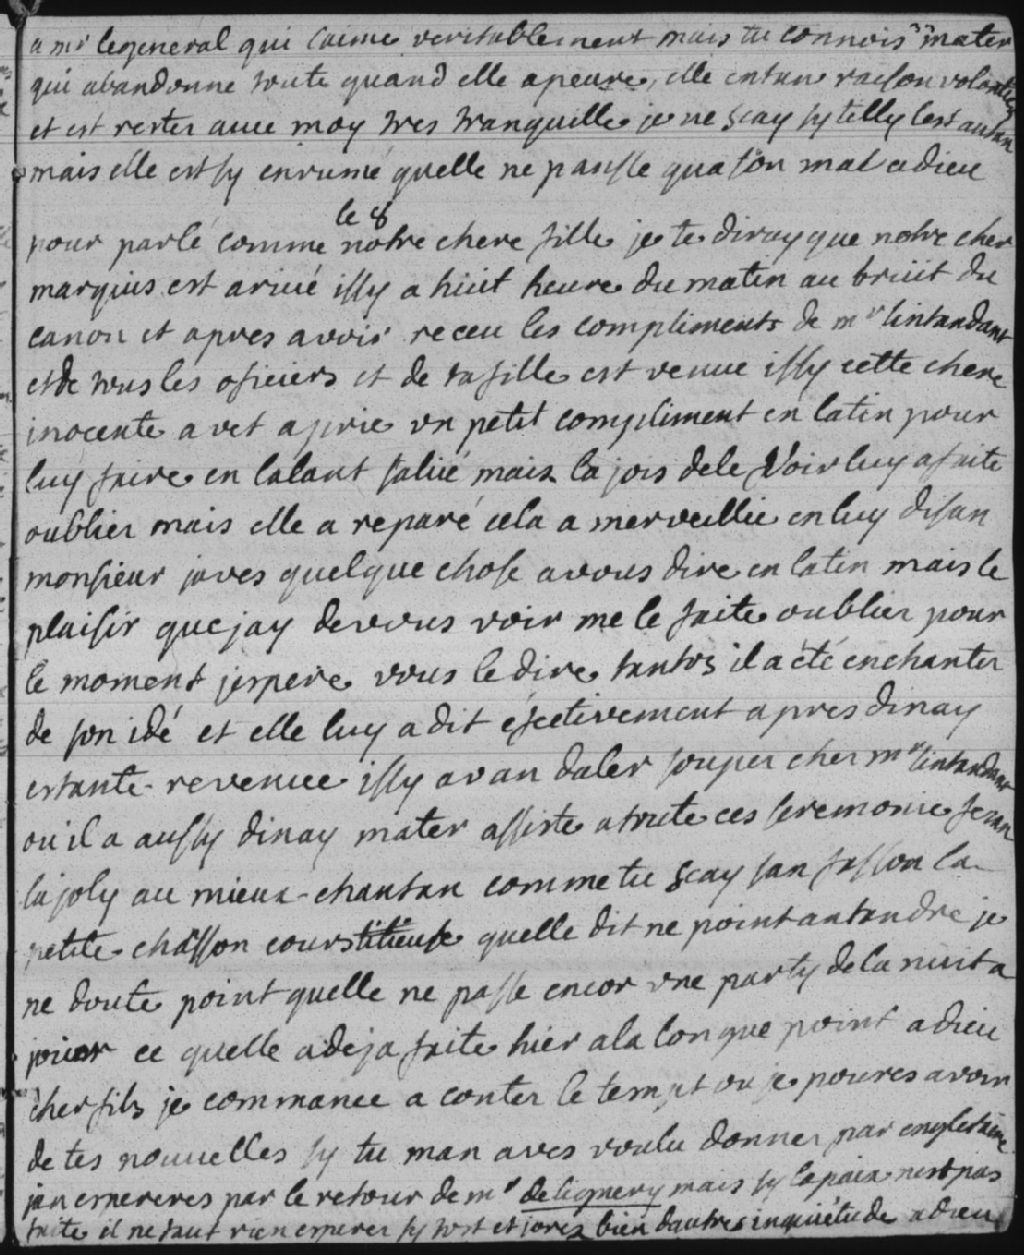 a mr legeneral qui laime veritablement mais tu connois mater
qui abandonne toute quand elle apeure, elle entan raison volontier
et est rester avec moy tres tranquille je ne scay sy telly lest autan
mais elle est sy enrumé quelle ne pansse qua son mal adieu
le 8
pour parlé comme notre chere fille je te diray que notre cher
marquis est arivé issy a hiüt heure du matin au brüit du
canon et apres avoir receu les compliments de mr lintandant
et de tous les oficiers et de ta fille est venue issy cette chere
inocente avet aprie un petit compliment en latin pour
luy faire en lalant salüé mais la jois dele voir luy a faite
oublier mais elle a reparé cela a merveillie en luy disan
monsieur javes quelque chose a vous dire en latin mais le
plaisir que jay de vous voir me le faite oublier pour
le moment jespere vous le dire tantos il a été enchanter
de son idé et elle luy a dit éfectivement apres dinay
estante revenue issy avan daler souper cher mr lintandant
ou il a aussy dinay mater assiste a toute ces seremonie fesan
la joly au mieux chantan comme tu scay san fasson la
petite chasson courstitieuse quelle dit ne point antandre je
ne doute point quelle ne passe encor une party de la nuit a
joüer ce quelle a deja faite hier a la longue point adieu
cher fils je commance a conter le tempt ou je poures avoir
de tes nouvelles sy tu man aves voulu donner par englestaire
jan espereres par le retour de mr delignery mais sy la paix nest pas
faite il ne faut rien esperer sy tost et jores bien dautres inquiétude adieu